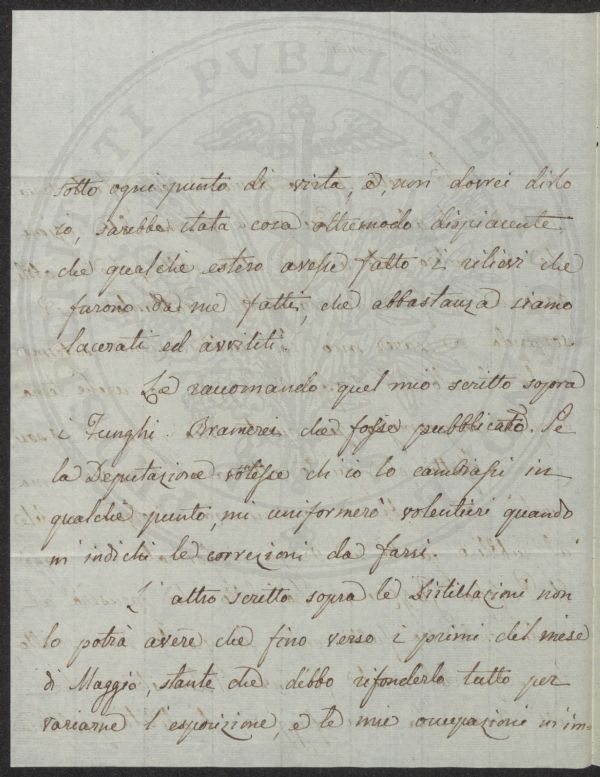 sotto ogni punto di vista, e, non dovrei dirlo
io, sarebbe stata cosa oltremodo dispiacente
che qualche estero avesse fatto i rilievi che
furono da me fatti, che abbastanza siamo
lacerati ed avviliti.
Le raccomando quel mio scritto sopra
i Funghi. Bramerei che fosse pubblicato. Se
la Deputazione volesse ch'io lo cambiassi in
qualche punto, mi uniformerò volentieri quando
m'indichi le correzioni da farsi.
L'altro scritto sopra le Distillazioni non
lo potrà avere che fino verso i primi del mese
di Maggio, stante che debbo rifonderlo tutto per
variarne l'esposizione, e le mie occupazioni m'im-
PUBLICAE